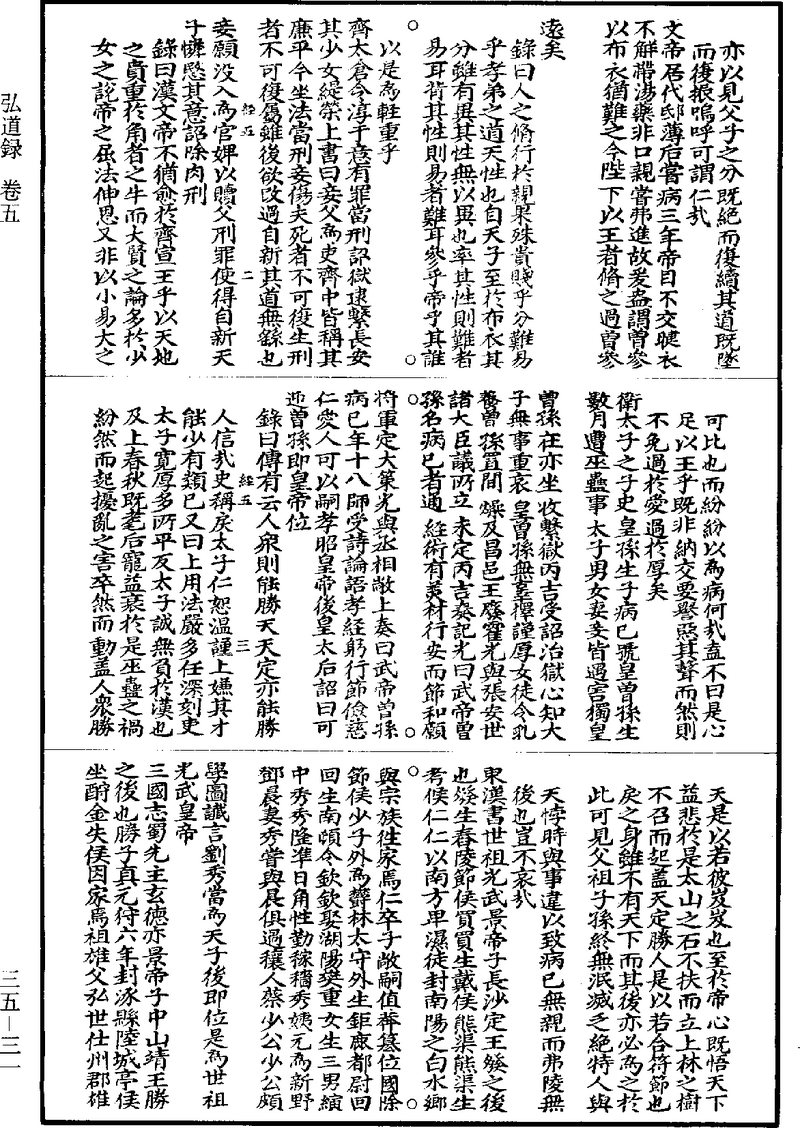 亦以見父子之分既絕而復續其道既墜
而復振嗚呼可謂仁哉
文帝居代邸薄后嘗病三年帝目不交睫衣
不解帶湯藥非口親嘗弗進故爰盎謂曾參
以布衣猶難之今陛下以王者脩之過曾參
遠矣
錄曰人之脩行於親果殊貴賤乎分難易
乎孝弟之道天性也自天子至於布衣其
分雖有異其性無以異也率其性則難者
易耳背其性則易者難耳參乎帝乎其誰
以是為輕重乎
齊太倉令淳于意有罪當刑詔獄逮繫長安
其少女緹縈上書曰妾父為吏齊中皆稱其
廉平今坐法當刑妾傷夫死者不可復生刑
者不可復屬雖後欲改過自新其道無繇也
經五 二
妾願沒入為官婢以贖父刑罪使得自新天
子憐愍其意詔除肉刑
錄曰漢文帝不猶愈於齊宣王乎以天地
之貴重於角者之牛而大賢之論多於少
女之說帝之屈法伸恩又非以小易大之
可比也而紛紛以為病何哉盍不曰是心
足以王乎既非納交要譽惡其聲而然則
不免過於愛過於厚矣
衛太子之子史皇孫生子病已號皇曾孫生
數月遭巫蠱事太子男女妻妾皆遇害獨皇
曾孫在亦坐收繫獄丙吉受詔治獄心知大
子無事重哀皇曾孫無辜擇謹厚女徒令乳
養曾孫置間燥及昌邑王廢霍光與張安世
諸大臣議所立未定丙吉奏記光曰武帝曾
孫名病已者通經術有美材行安而節和願
將軍定大策光與丞相敞上奏曰武帝曾孫
病已年十八師受詩論語孝經躬行節儉慈
仁愛人可以嗣孝昭皇帝後皇太后詔曰可
迎曾孫即皇帝位
錄曰傳有云人衆則能勝天天定亦能勝
經五 三
人信哉史稱戾太子仁恕溫謹上嫌其才
能少有類已又曰上用法嚴多任深刻吏
太子寬厚多所平反太子誠無負於漢也
及上春秋既老后寵益衰於是巫蠱之禍
紛然而起擾亂之害卒然而動蓋人衆勝
天是以若彼岌岌也至於帝心既悟天下
益悲於是太山之石不扶而立上林之樹
不召而起蓋天定勝人是以若合符節也
戾之身雖不有天下而其後亦必為之於
此可見父祖子孫終無泯滅乏絕特人與
天悖時與事違以致病已無親而弗陵無
後也豈不哀哉
東漢書世祖光武景帝子長沙定王發之後
也發生舂陵節侯買買生戴侯熊渠熊渠生
考侯仁仁以南方卑濕徙封南陽之白水鄉
與宗族往家焉仁卒子敞嗣值莽篡位國除
節侯少子外為鬱林太守外生鉅鹿都尉回
回生南頓令欽欽娶湖陽樊重女生三男縯
中秀秀隆準日角性勤稼穡秀姨元為新野
鄧晨妻秀嘗與晨俱過穰人蔡少公少公頗
學圖讖言劉秀當為天子後即位是為世祖
光武皇帝
三國志蜀先主玄德亦景帝子中山靖王勝
之後也勝子真元狩六年封涿縣陸城亭侯
坐酎金失侯因家焉祖雄父弘世仕州郡雄
弘道録 卷五
三五-三一